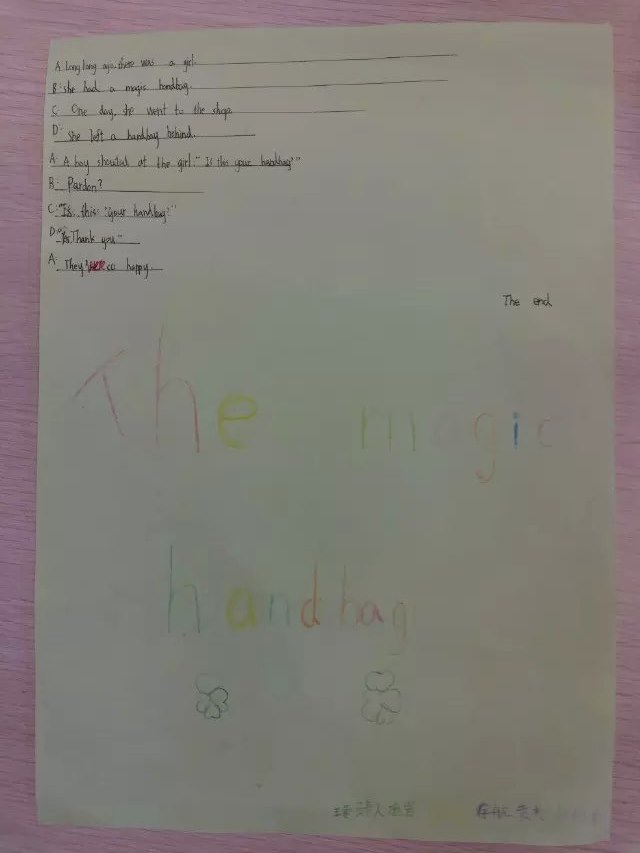 A. Long long ago, there was a girl.
B: she had a magic handbag.
C: One day, she went to the shop.
D: She left a handbag behind.
A: A boy shouted at the girl: "Is this your handbag?"
B: Pardon?
C: "Is this "your handbag?"
D: "Yes, Thank you"
A: They were so happy.
The end
The magic
handbag